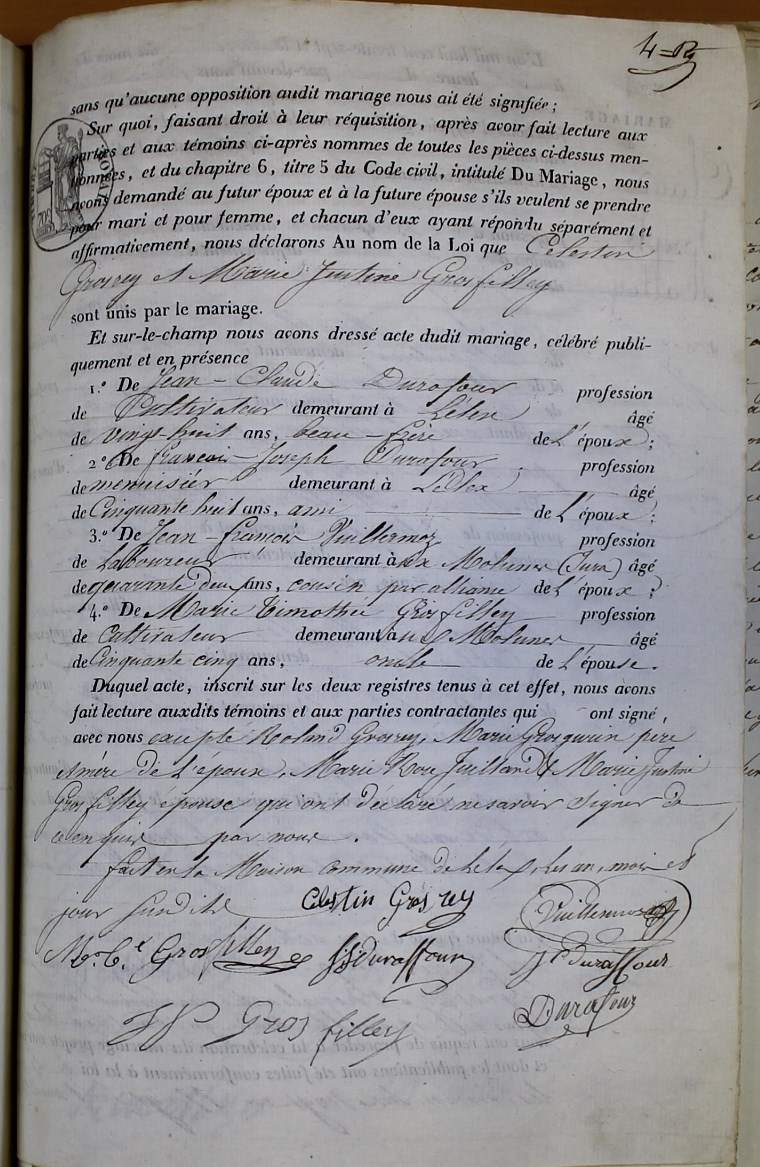 sans qu'aucune opposition audit mariage nous ait été signifiée ;
Sur quoi, faisant droit à leur réquisition, après avoir fait lecture aux
parties et aux témoins ci-après nommes de toutes les pièces ci-dessus men-
tionnées, et du chapitre 6, titre 5 du Code civil, intitulé Du Mariage, nous
avons demandé au futur époux et à la future épouse s'ils veulent se prendre
pour mari et pour femme, et chacun d'eux ayant répondu séparément et
affirmativement, nous déclarons Au nom de la Loi que Celestin
Grosrey et Marie Justine Grosfilley
sont unis par le mariage.
Et sur-le-champ nous avons dressé acte dudit mariage, célébré publi-
quement et en présence
1.º De Jean-Claude Durafour profession
de Cultivateur demeurant à Lélex âgé
de vingt-huit ans, beau-frère de L'époux ;
2º De françois-Joseph Durafour profession
de menuisier demeurant à Lélex âgé
de Cinquante huit ans, ami de L'époux ;
3.º De Jean-françois Vuillermoz profession
de Laboureur demeurant à ux Molunes (Jura) âgé
de quarante deux ans, cousin par alliance de L'époux ;
4.º De Marie Timothée Grosfilley profession
de Cultivateur demeurant aux Molunes âgé
de Cinquante cinq ans, oncle de L'épouse.
Duquel acte, inscrit sur les deux registres tenus à cet effet, nous avons
fait lecture auxdits témoins et aux parties contractantes qui ont signé,
avec nous excepté Roland Grosrey, Marie Grosgurin père
et mère de L'époux, Marie Rose Juilland & Marie Justine
Grosfilley épouse qui ont déclaré ne savoir signer de
ce enquis par nous.
fait en la Maison commune de Lélex, les an, mois et
jour susdits
Celestin Grosrey
Vuillermoz
M.e T.e Grosfilley
fJ duraffour
Jh duraffour
Durafour
JJ Grosfilley